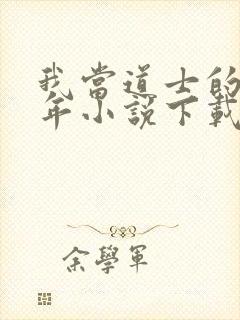 我當道士的
年小說下載
余學軍